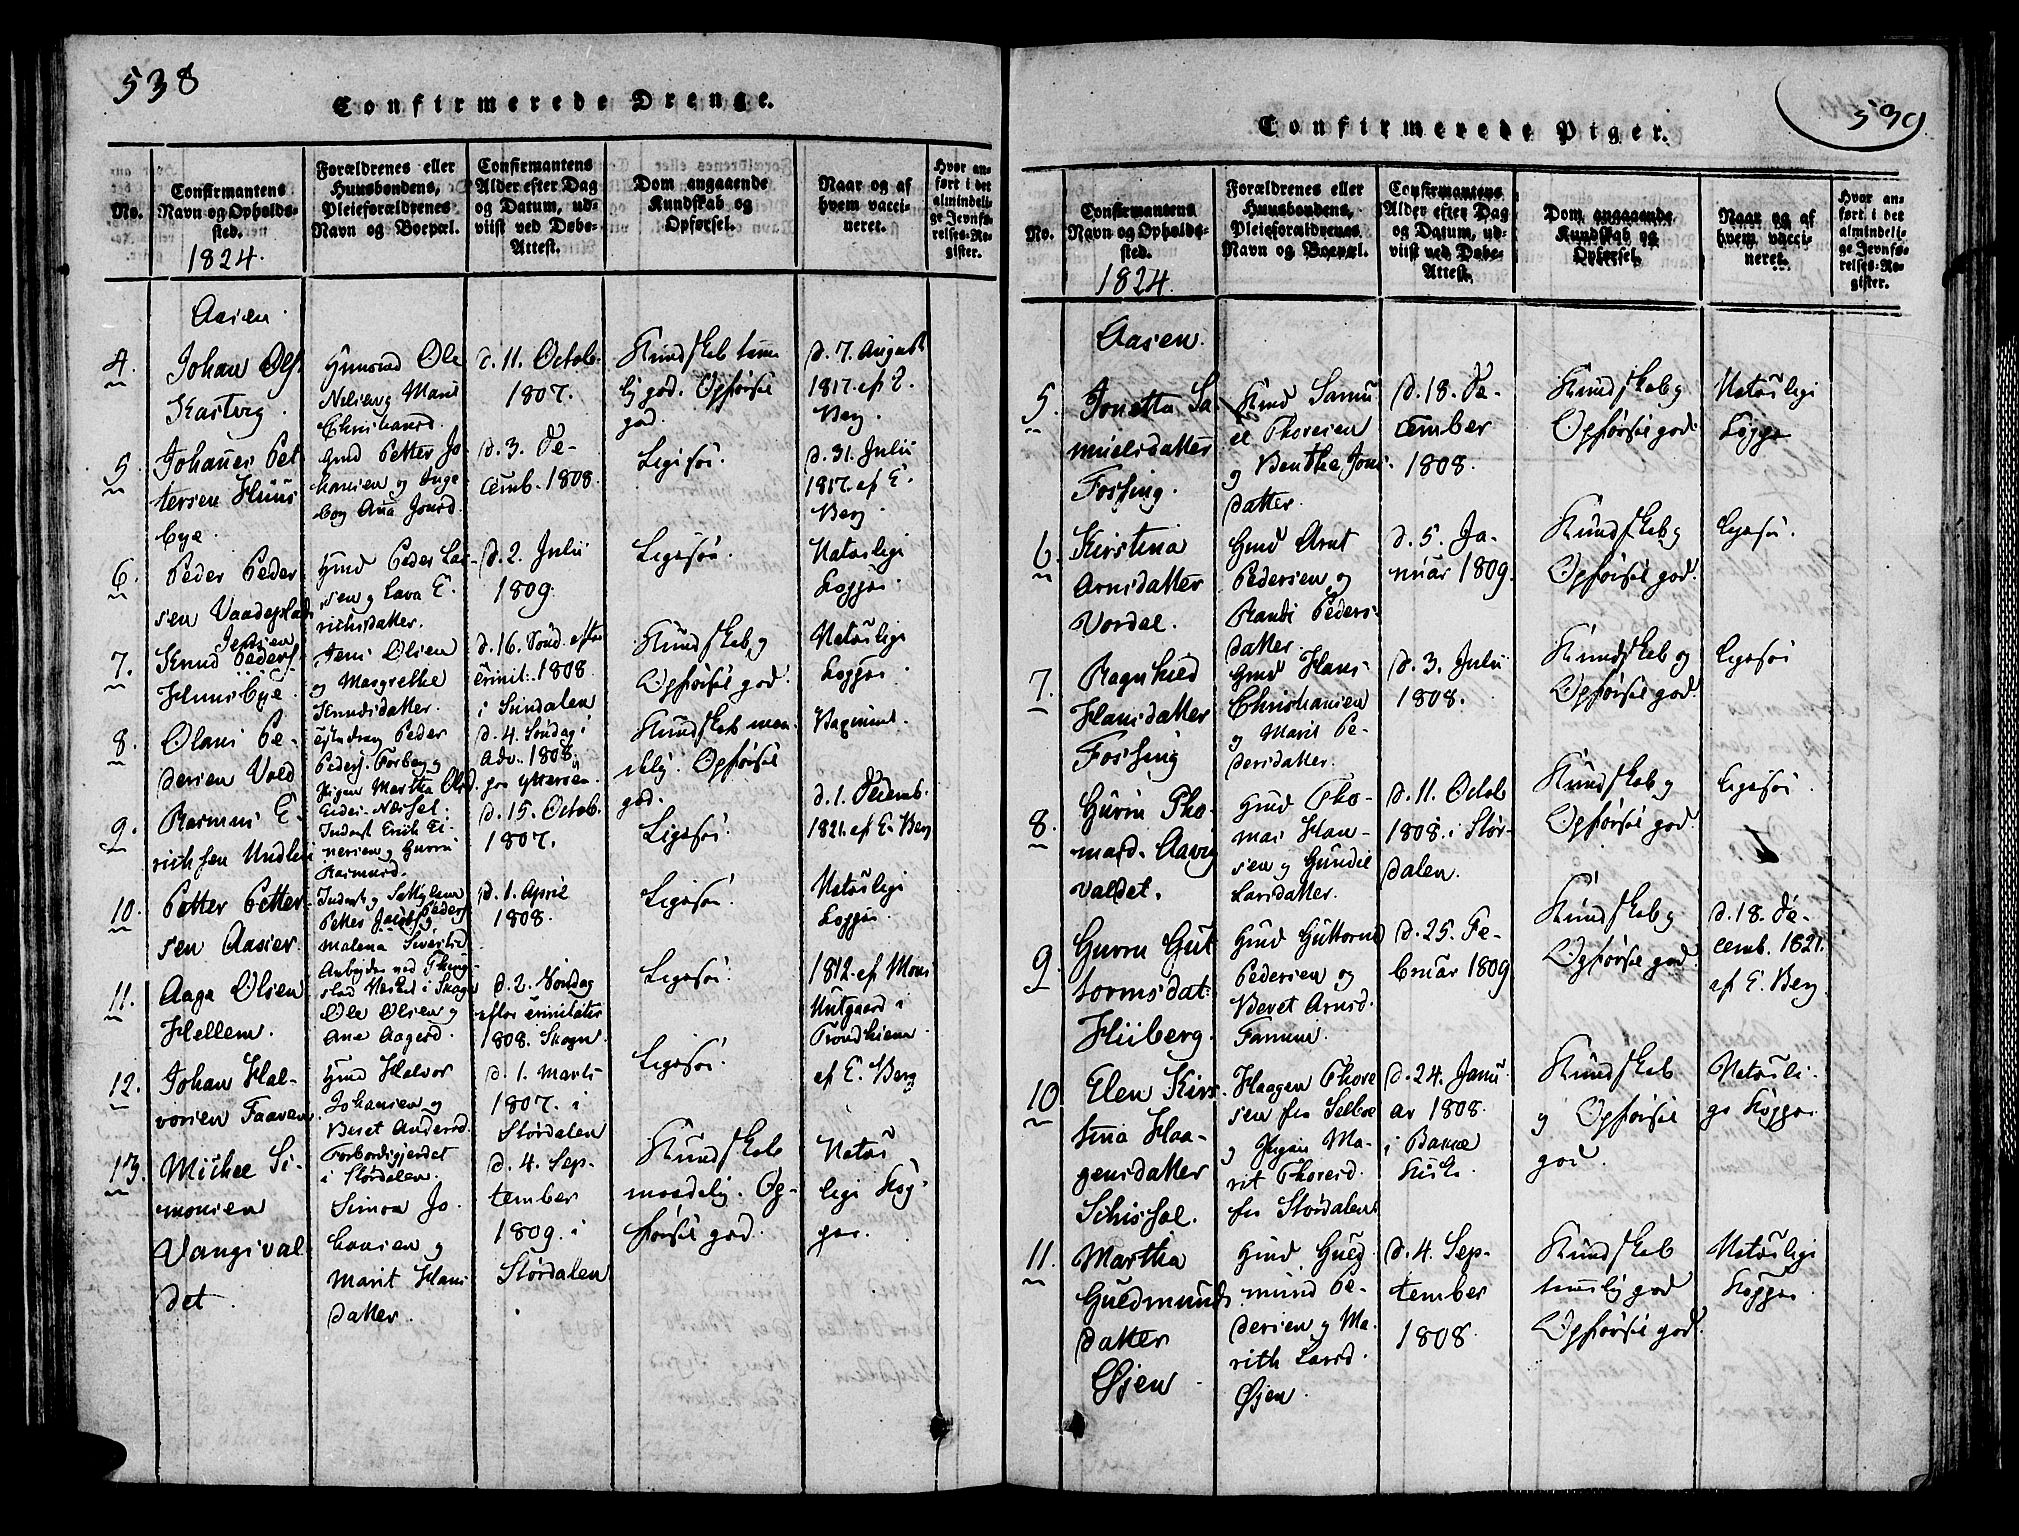 538
Confirmerede Drenge.
No.
Confirmantens
Navn og Opholds-
sted.
1824.
Forældrenes eller
Huusbondens,
Pleieforældrenes
Navn og Boepæl.
Confirmantens
Alder efter Dag
og Datum, ud-
viist ved Døbe-
Attest.
Dom angaaende
Kundskab og
Opførsel.
Naar og af
hvem vacci-
neret.
Hvor an-
ført i det
almindeli-
ge Jevnfø-
relses-Re-
gister.
Aasen.
4.
Johan Ols.
Kastvig.
Gmd Ole
Nilsen og Marit
Christiansd.
d. 11. Octob.
1807.
Kundskab tem
lig god. Opførsel
god.
d. 7. August
1817. af E.
Berg.
5
Johanes Pet
tersen Huus
bye.
Gmd Petter Jo
hansen og Inge
borg Ana Jonsd.
d. 3. De-
cemb. 1808.
Ligesoe.
d. 31. Julii
1817. af E.
Berg.
6.
Peder Peder
sen Vaadeplads
Gmd Peder Las-
sen og Lava E.
richsdatter.
d. 2. Julii
1809.
Ligesoe.
Naturlige
Kopper.
7.
Jensen
Knud Peders.
Huusbye.
Jens Olsen
og Margrethe
Knudsdatter.
d. 16. Sønd. efter
Trinit. 1808
i Sundalen
Kundskab og
Opførsel god.
Naturlige
Kopper.
8.
Olaus Pe-
dersen Vold
Peder
Peders. Forberg og
Pigen Martha Olsd.
d. 4. Søndag i
Adv. 1808.
paa Ytterøen.
Kundskab maa
delig. Opførsel
god.
Vaccineret.
9.
Rasmus E-
richsen Undlien
Inderst Erich Ei-
nersen og Guru
Rasmusd.
d. 15. Octob.
1807.
Ligesoe.
d. 1. Decemb.
1821. af E. Berg
10.
Petter Petter-
sen Aasen.
Petter Jacobs.
Malena Sivertsd.
d. 1. April
1808.
Ligesoe.
Naturlige
Kopper.
11.
Aage Olsen
Hellem.
Ole Olsen og
Ane Aagesd.
d. 2. Søndag
efter Trinitatis
1808. Skogn.
Ligesoe.
1812. af Mons
Hutgaard i
Trondhiem
12.
Johan Hal-
vorsen Faaren
Gmd Halvor
Johansen og
Beret Andersd.
d. 1. Marts
1807. i
Størdalen
Ligesoe.
af E. Berg
13.
Michel Si-
monsen
Vangsval
det.
Forbordsgjerdet
i Størdalen.
Simon Jo
hansen og
Marit Hans
datter.
d. 4. Sep-
tember
1809. i
Størdalen
Kundskab
maadelig. Op-
førsel god.
Natur
lige Kop-
per.
539
Confirmerede Piger.
No.
Confirmantens
Navn og Opholds-
sted.
1824.
Forældrenes eller
Huusbondens,
Pleieforældrenes
Navn og Boepæl.
Confirmantens
Alder efter Dag
og Datum, ud-
viist ved Døbe-
Attest.
Dom angaaende
Kundskab og
Opførsel.
Naar og af
hvem vacci-
neret.
Hvor an-
ført i det
almindeli-
ge Jevnfø-
relses-Re-
gister.
Aasen.
5.
Jonetta Sa
muelsdatter
Fossing.
Gmd Samu
el Thoresen
og Benthe Jons-
datter.
d. 18. De-
cember
1808.
Kundskab og
Opførsel god.
Naturlige
Kopper
6.
Kirstina
Arnsdatter
Vordal.
Gmd Arnt
Pedersen og
Randi Peders-
datter.
d. 5. Ja-
nuar 1809.
Kundskab og
Opførsel god.
Ligesoe.
7.
Ragnhild
Hansdatter
Fossing
Gmd Hans
Christiansen
og Marit Pe-
dersdatter.
d. 3. Julii
1808.
Kundskab og
Opførsel god.
Ligesoe
8.
Guru Tho-
masd. Aavig
valdet.
Gmd Tho-
mas Han-
sen og Gundil
Larsdatter.
d. 11. Octob
1808. i Stør-
dalen.
Kundskab og
Opførsel god.
Ligesoe.
9.
Guru Gut
tormsdat:
Hiiberg.
Gmd Guttorm
Pedersen og
Beret Arnsd.
d. 25. Fe-
bruar 1809
Kundskab og
Opførsel god.
d. 18. De-
cemb. 1821.
af E. Berg.
10
Elen Kirs-
tina Haa-
gensdatter
Schisfal.
Haagen Thore
sen fra Selboe
og Pigen Ma-
rit Thoresd.
fra Størdalen
d. 24. Janu
ar 1808.
i
Kirke.
Kundskab
og Opførsel
god.
Naturli-
ge Kopper.
11.
Martha
Guldmunds
datter
Øjen
Gmd Guld
mund Pe-
dersen og Ma-
rith Larsd.
Øjen.
d. 4. Sep-
tember
1808.
Kundskab
temmelig god
Opførsel god.
Naturlige
Kopper.